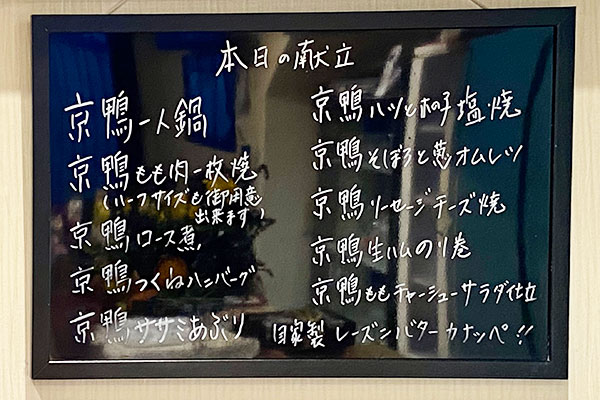 本日の献立
京鴨一人鍋
京鴨もも肉一枚焼
(ハーフサイズも御用意
出来ます)
京鴨ロース煮
京鴨つくねハンバーグ
京鴨ササミあぶり
京鴨ハツときのこ塩焼
京鴨そぼろと葱オムレツ
京鴨ソーセージチーズ焼
京鴨生ハムのり巻
京鴨ももチャーシューサラダ仕立
自家製レーズンバターカナッペ!!